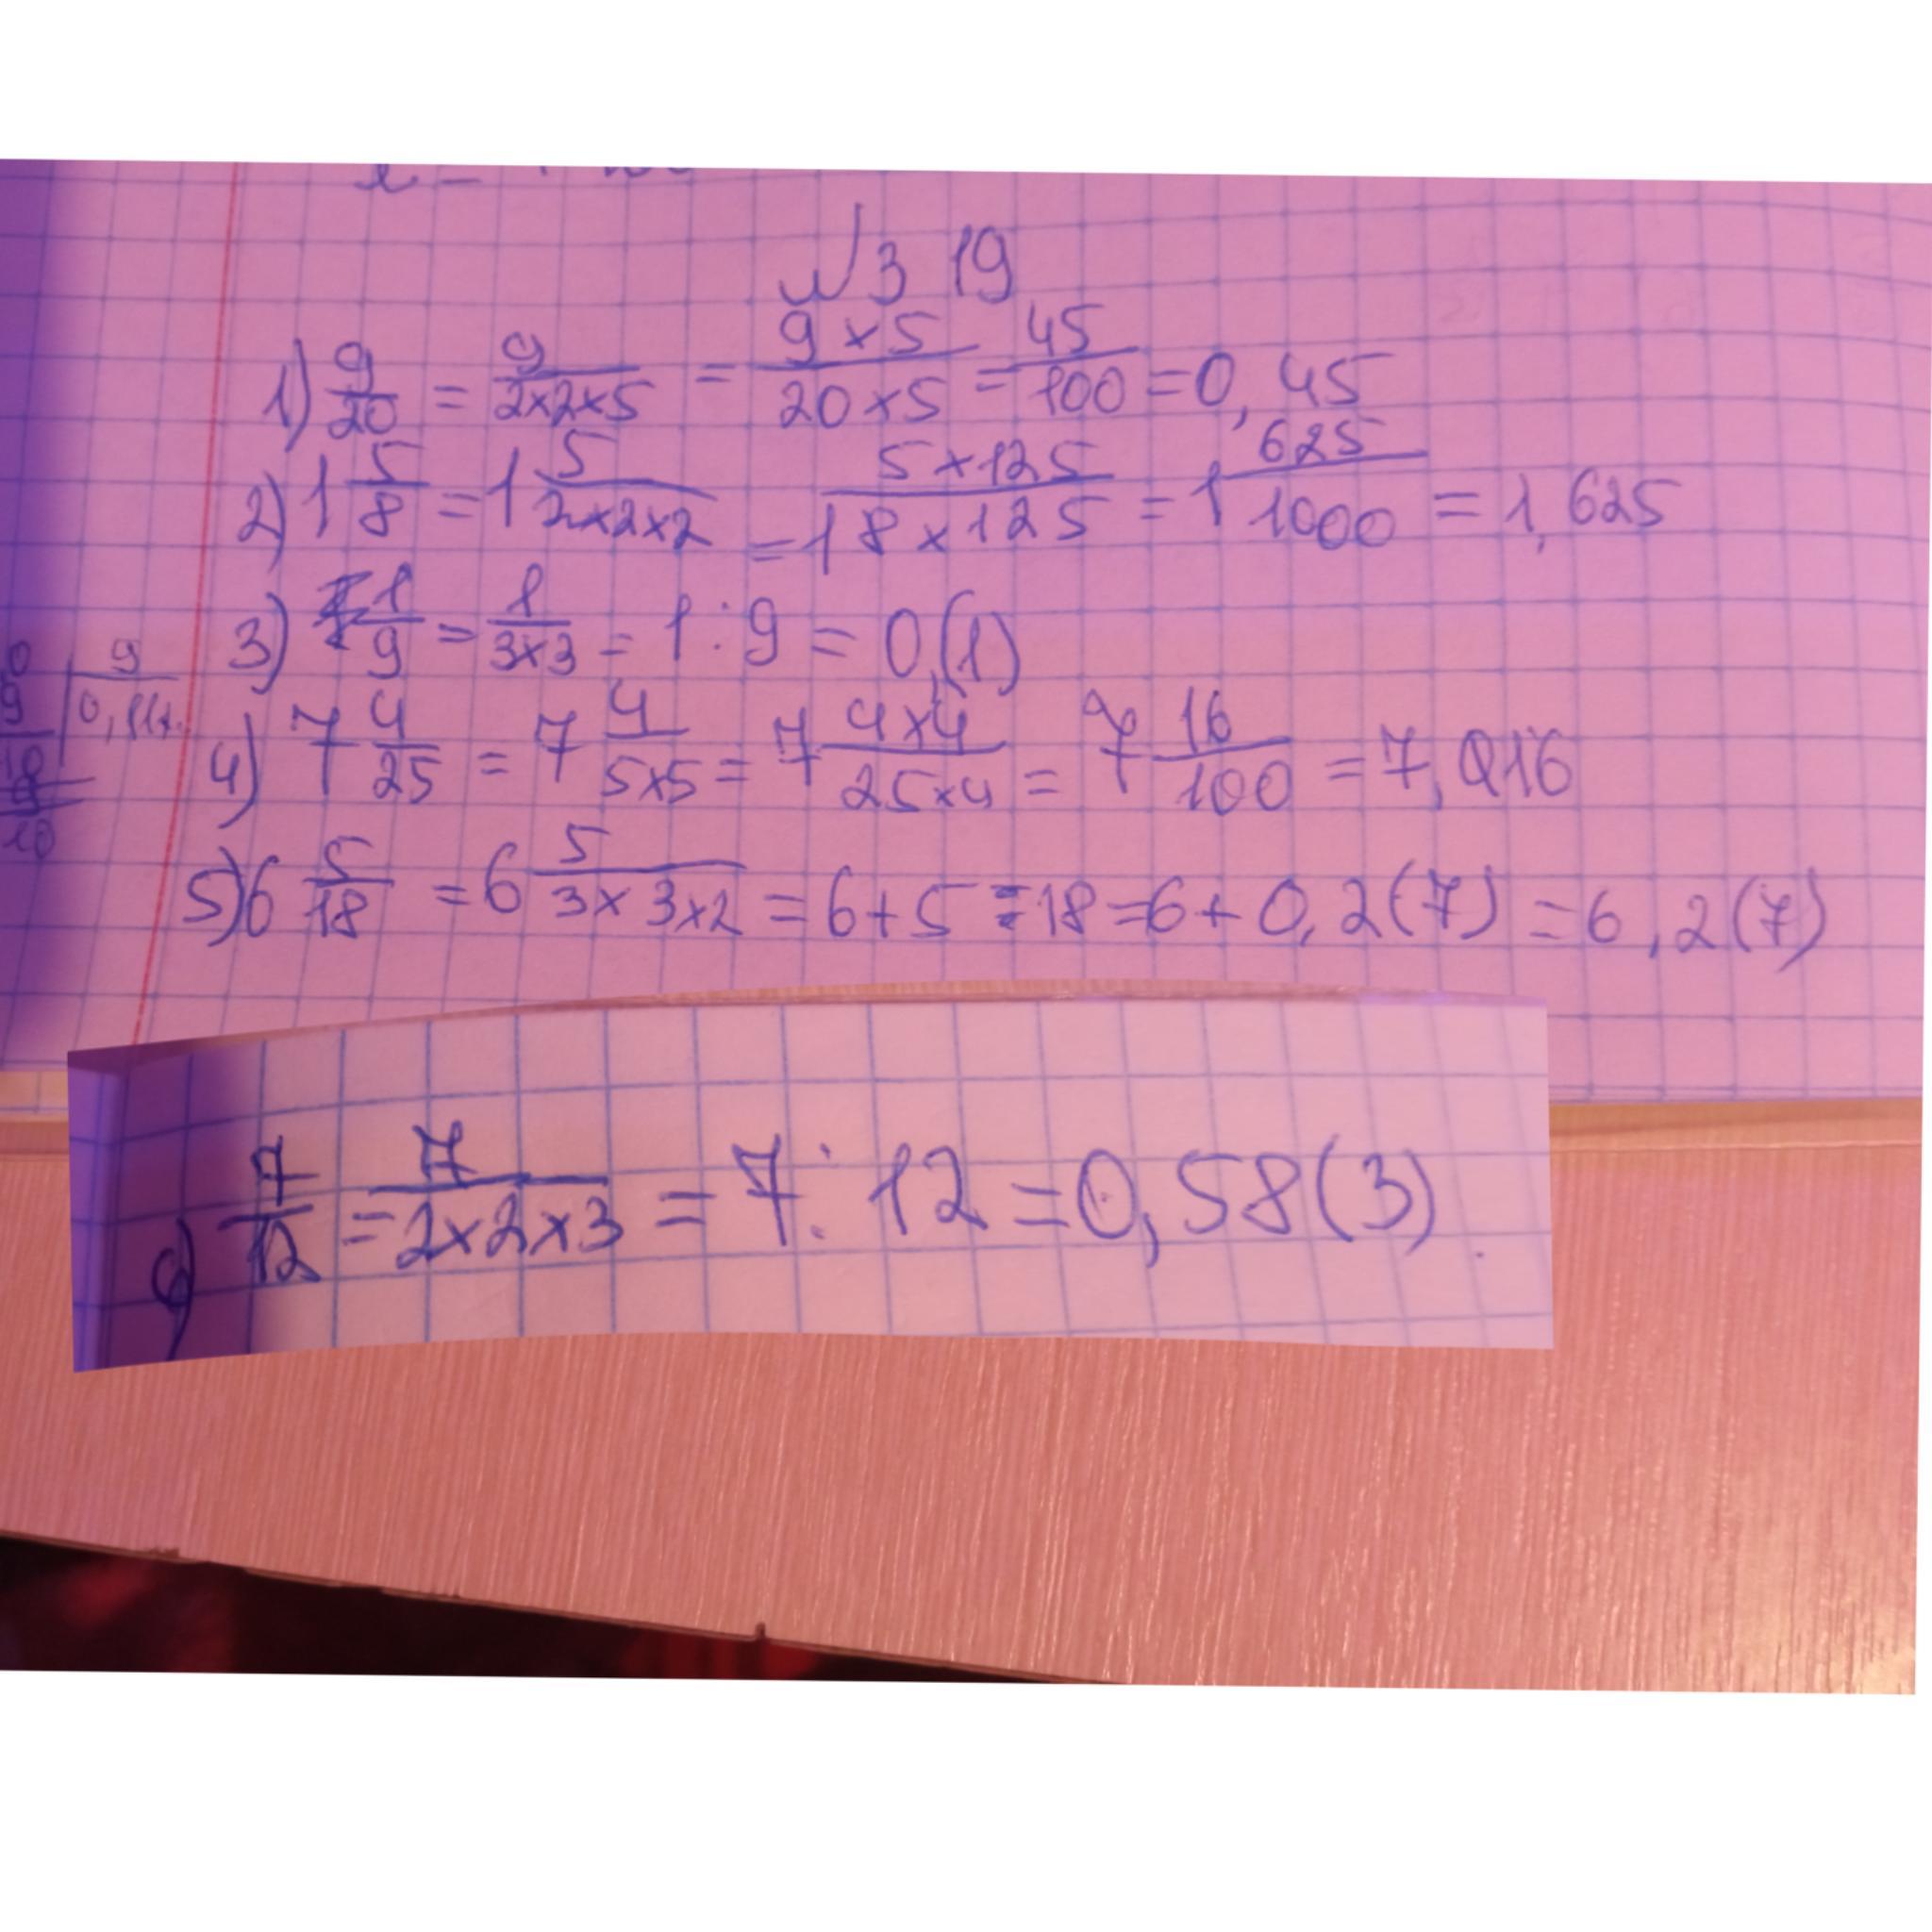 № 319
1) 9/20 = 9/2×2×5 = 9×5/20×5 = 45/100 = 0,45
2) 1 5/8 = 1 5/2×2×2 = 1 5×125/8×125 = 1 625/1000 = 1,625
3) 1/9 = 1/3×3 = 1:9 = 0,(1)
9
4) 7 4/25 = 7 4/5×5 = 7 4×4/25×4 = 7 16/100 = 7,016
10
5) 6 5/18 = 6 5/3×3×2 = 6+5:18 = 6+0,2(7) = 6,2(7)
6) 7/12 = 7/2×2×3 = 7:12 = 0,58(3).